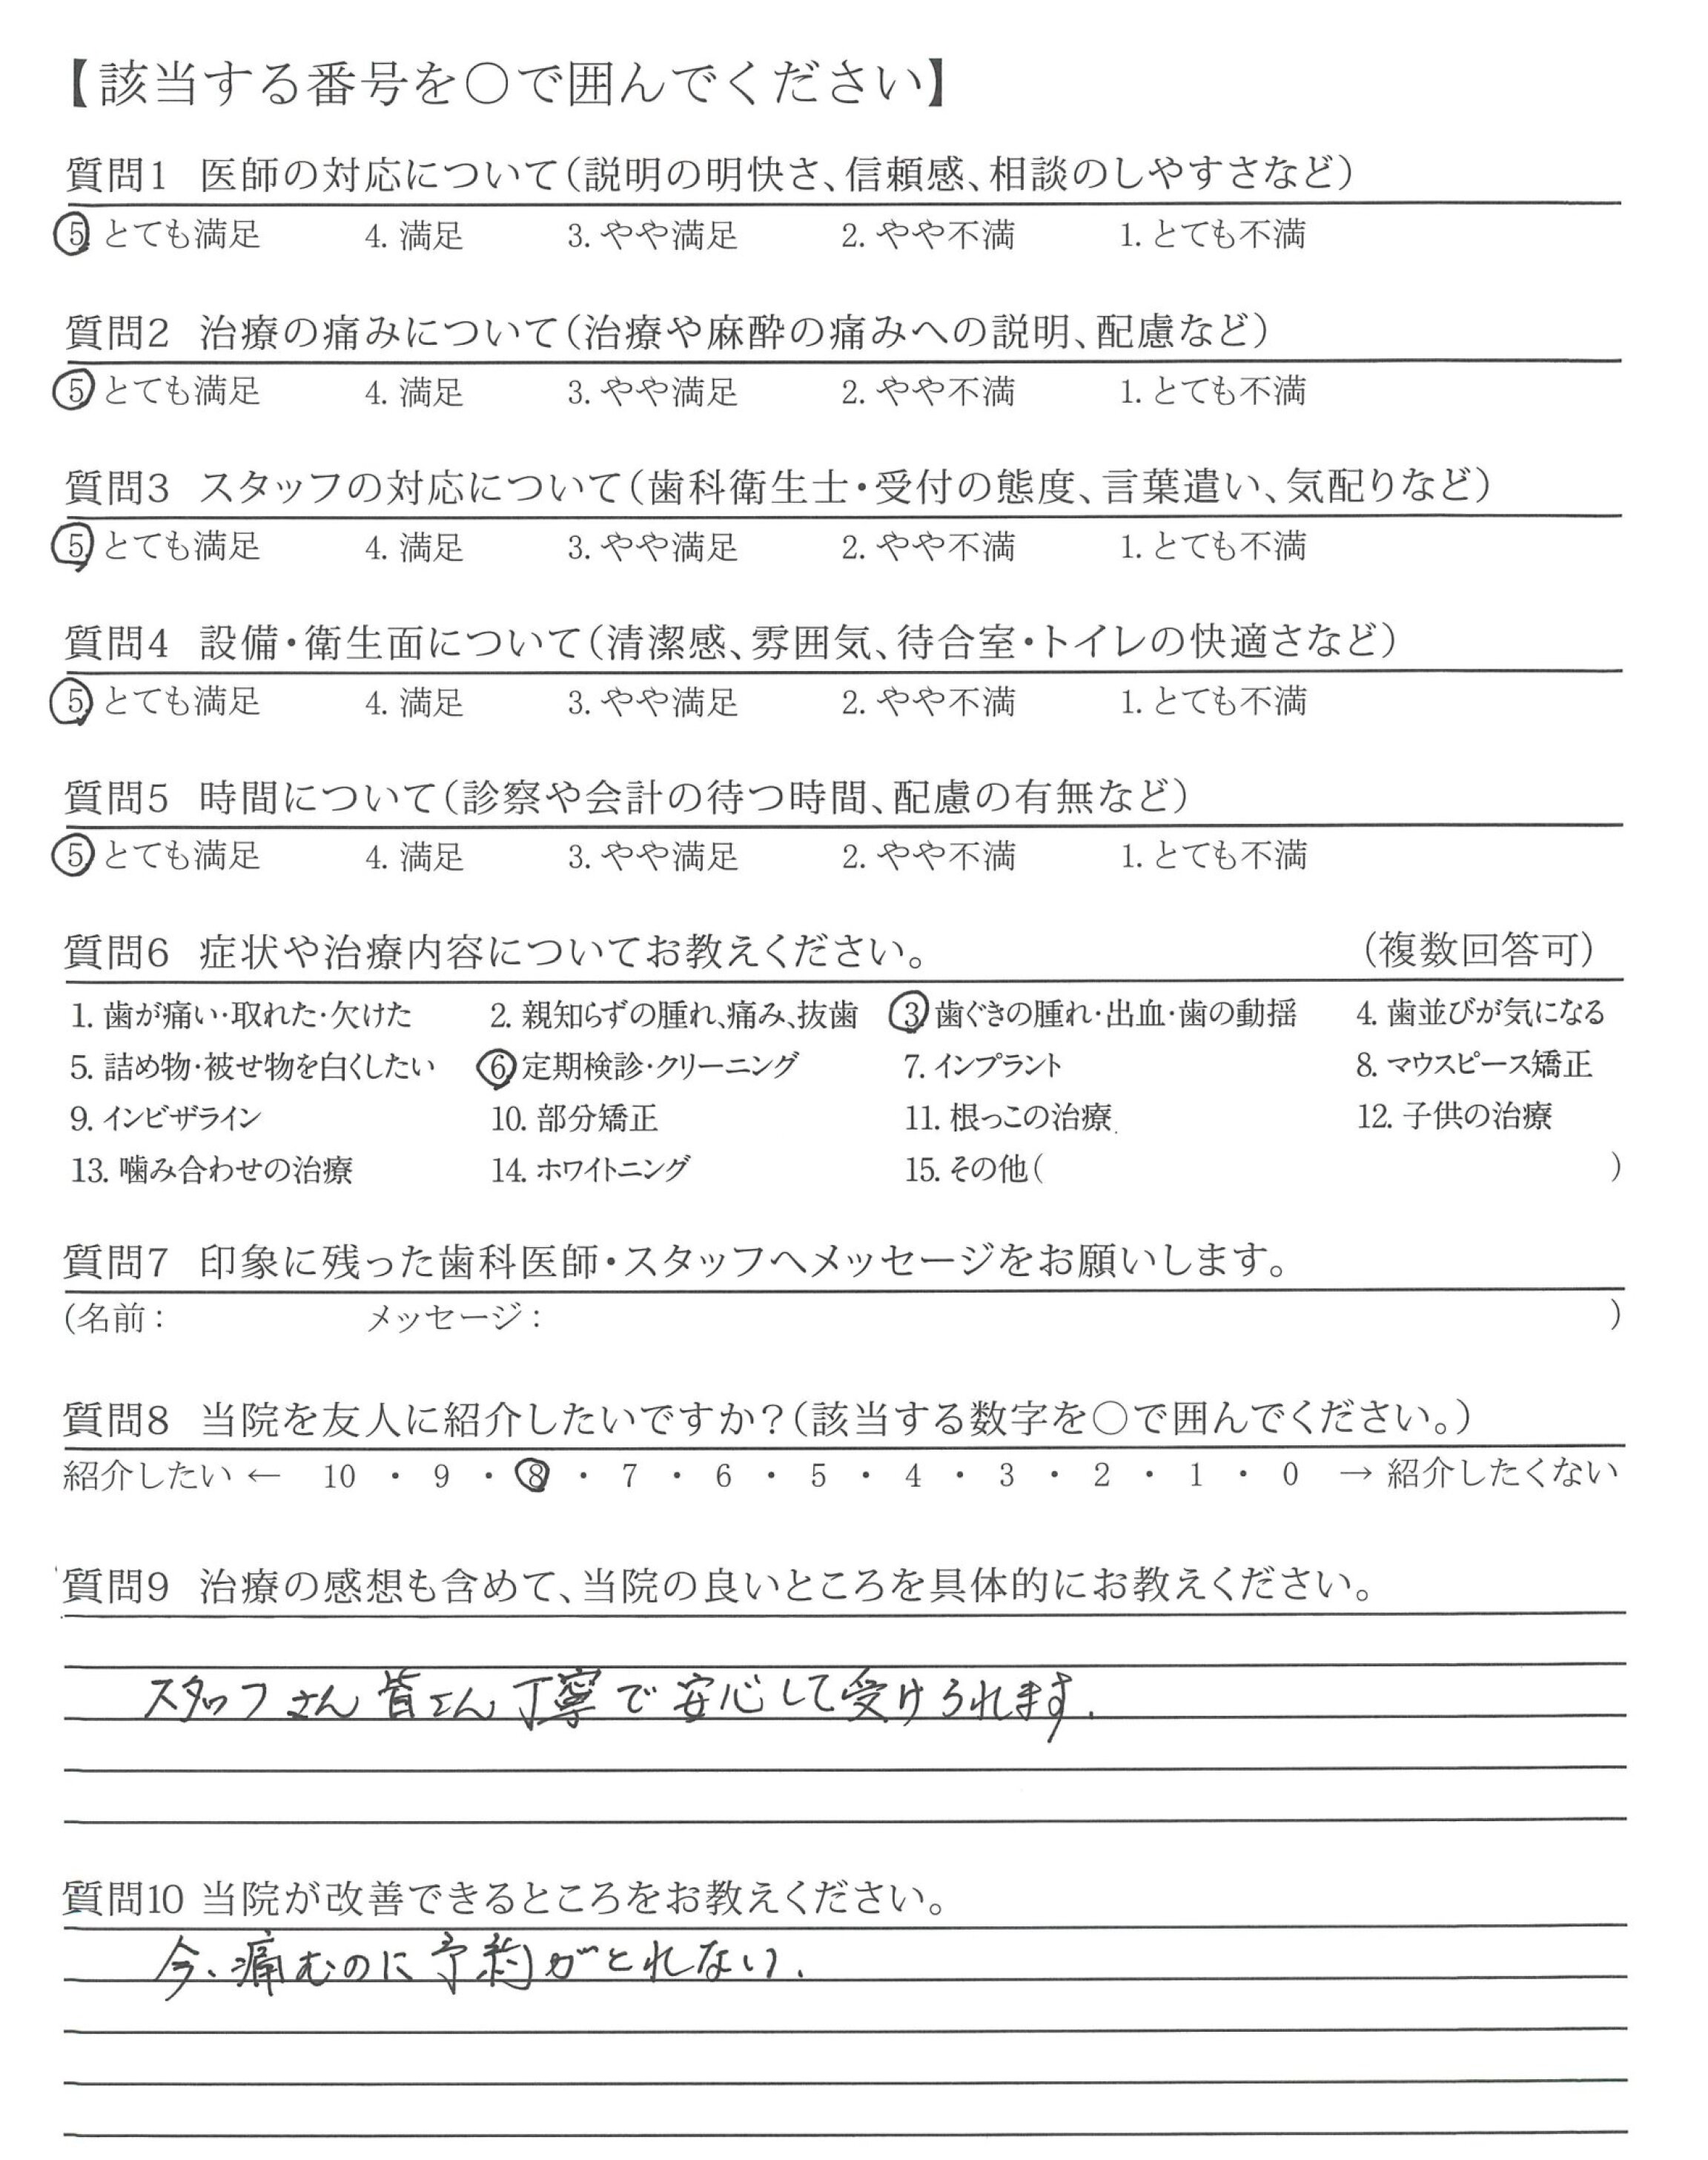 【該当する番号を○で囲んでください】
質問1 医師の対応について(説明の明快さ、信頼感、相談のしやすさなど)
5. とても満足 4. 満足 3. やや満足 2. やや不満 1. とても不満
質問2 治療の痛みについて(治療や麻酔の痛みへの説明、配慮など)
5. とても満足 4. 満足 3. やや満足 2. やや不満 1. とても不満
質問3 スタッフの対応について(歯科衛生士・受付の態度、言葉遣い、気配りなど)
5. とても満足 4. 満足 3. やや満足 2. やや不満 1. とても不満
質問4 設備・衛生面について(清潔感、雰囲気、待合室・トイレの快適さなど)
5. とても満足 4. 満足 3. やや満足 2. やや不満 1. とても不満
質問5 時間について(診察や会計の待つ時間、配慮の有無など)
5. とても満足 4. 満足 3. やや満足 2. やや不満 1. とても不満
質問6 症状や治療内容についてお教えください。 (複数回答可)
1. 歯が痛い・取れた・欠けた 2. 親知らずの腫れ、痛み、抜歯 3. 歯ぐきの腫れ・出血・歯の動揺 4. 歯並びが気になる
5. 詰め物・被せ物を白くしたい 6. 定期検診・クリーニング 7. インプラント 8. マウスピース矯正
9. インビザライン 10. 部分矯正 11. 根っこの治療 12. 子供の治療
13. 噛み合わせの治療 14. ホワイトニング 15. その他( )
質問7 印象に残った歯科医師・スタッフへメッセージをお願いします。
(名前: メッセージ: )
質問8 当院を友人に紹介したいですか?(該当する数字を○で囲んでください。)
紹介したい ← 10 ・ 9 ・ 8 ・ 7 ・ 6 ・ 5 ・ 4 ・ 3 ・ 2 ・ 1 ・ 0 → 紹介したくない
質問9 治療の感想も含めて、当院の良いところを具体的にお教えください。
スタッフさん皆さん丁寧で安心して受けられます.
質問10 当院が改善できるところをお教えください。
今、痛むのに予約がとれない.